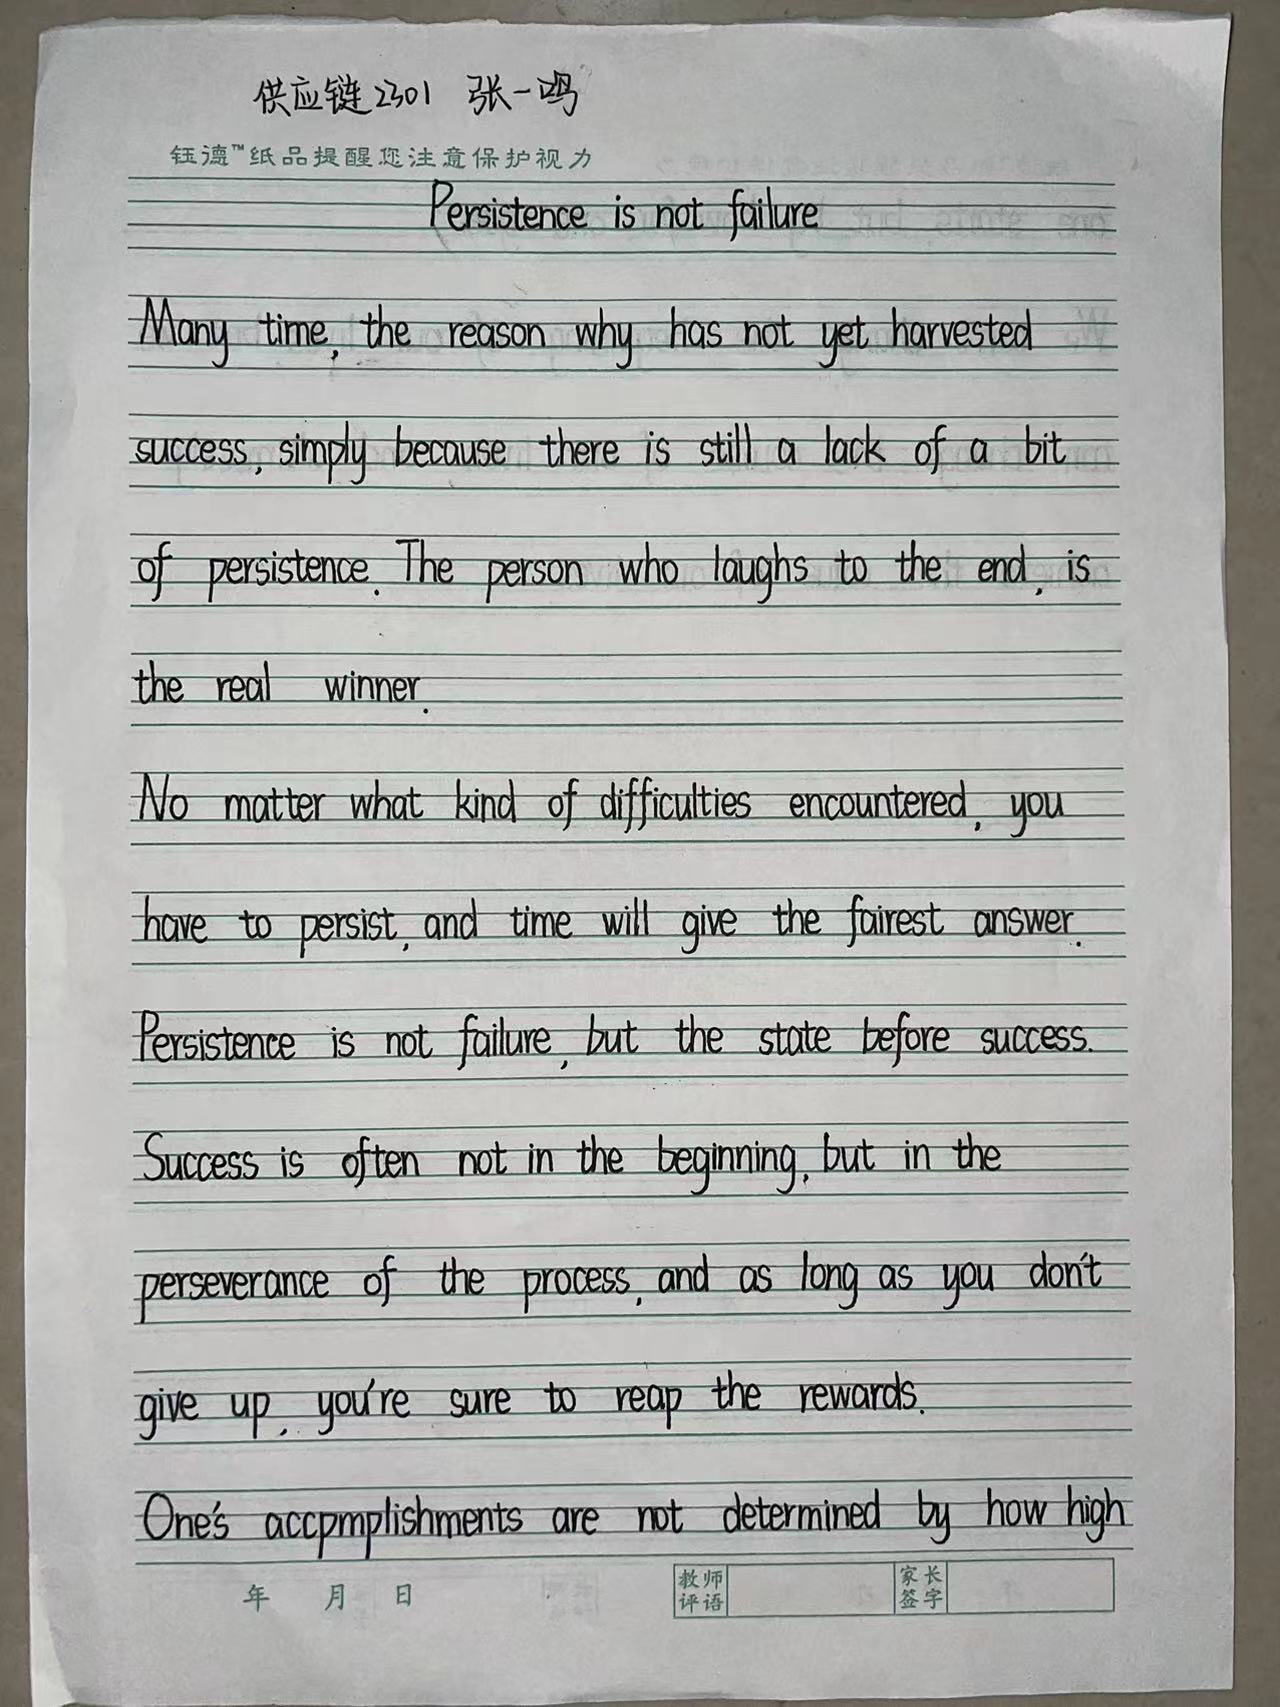 供应链2301 张一鸣
钰德™纸品提醒您注意保护视力
Persistence is not failure
Many time, the reason why has not yet harvested
success, simply because there is still a lack of a bit
of persistence. The person who laughs to the end, is
the real winner.
No matter what kind of difficulties encountered, you
have to persist, and time will give the fairest answer.
Persistence is not failure, but the state before success.
Success is often not in the beginning, but in the
perseverance of the process, and as long as you don't
give up, you're sure to reap the rewards.
One's accpmplishments are not determined by how high
年 月 日
教师评语
家长签字